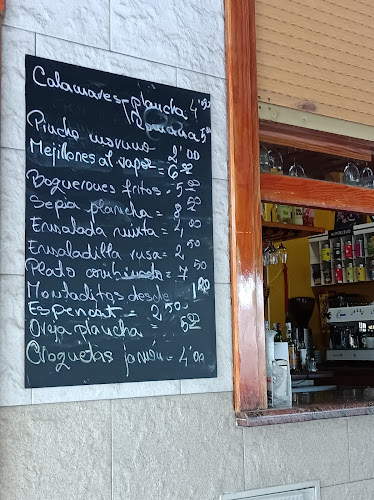 Calamares plancha 4'50
Romana 5'00
Pincho moruno 2'00
Mejillones al vapor = 6'50
Boquerones fritos = 5'50
Sepia plancha = 8'50
Ensalada mixta = 4'00
Ensaladilla rusa = 2'50
Plato combinado = 7'50
Montaditos desde 1'80
Espencat = 2'50
Oreja plancha = 5'50
Croquetas jamón = 4'00